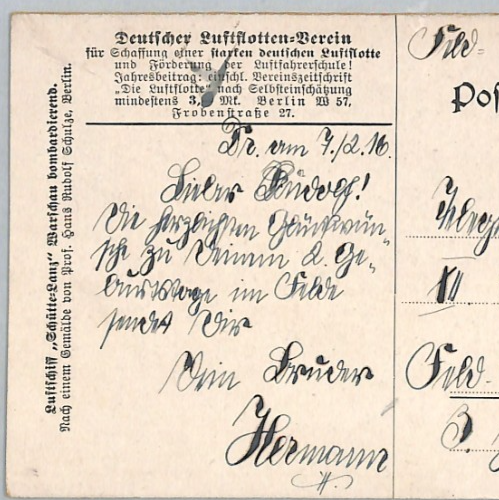 Deutscher Luftflotten-Verein
für Schaffung einer starken deutschen Luftflotte
und Förderung der Luftfahrerschule!
Jahresbeitrag: einschl. Vereinszeitschrift
"Die Luftflotte" nach Selbsteinschätzung
mindestens 3, Mk. Berlin W 57,
Frobenstraße 27.
Luftschiff „Schütte-Lanz" Warschau bombardierend.
Nach einem Gemälde von Prof. Hans Rudolf Schulze, Berlin.
Dr. am 7./2.16.
Lieber Rudolf!
Die herzlichsten Glückwün-
sche zu Deinem 2. Ge-
burtstage im Felde
sendet Dir
Dein Bruder
Hermann
Feld-
Pos
Feld-
3.